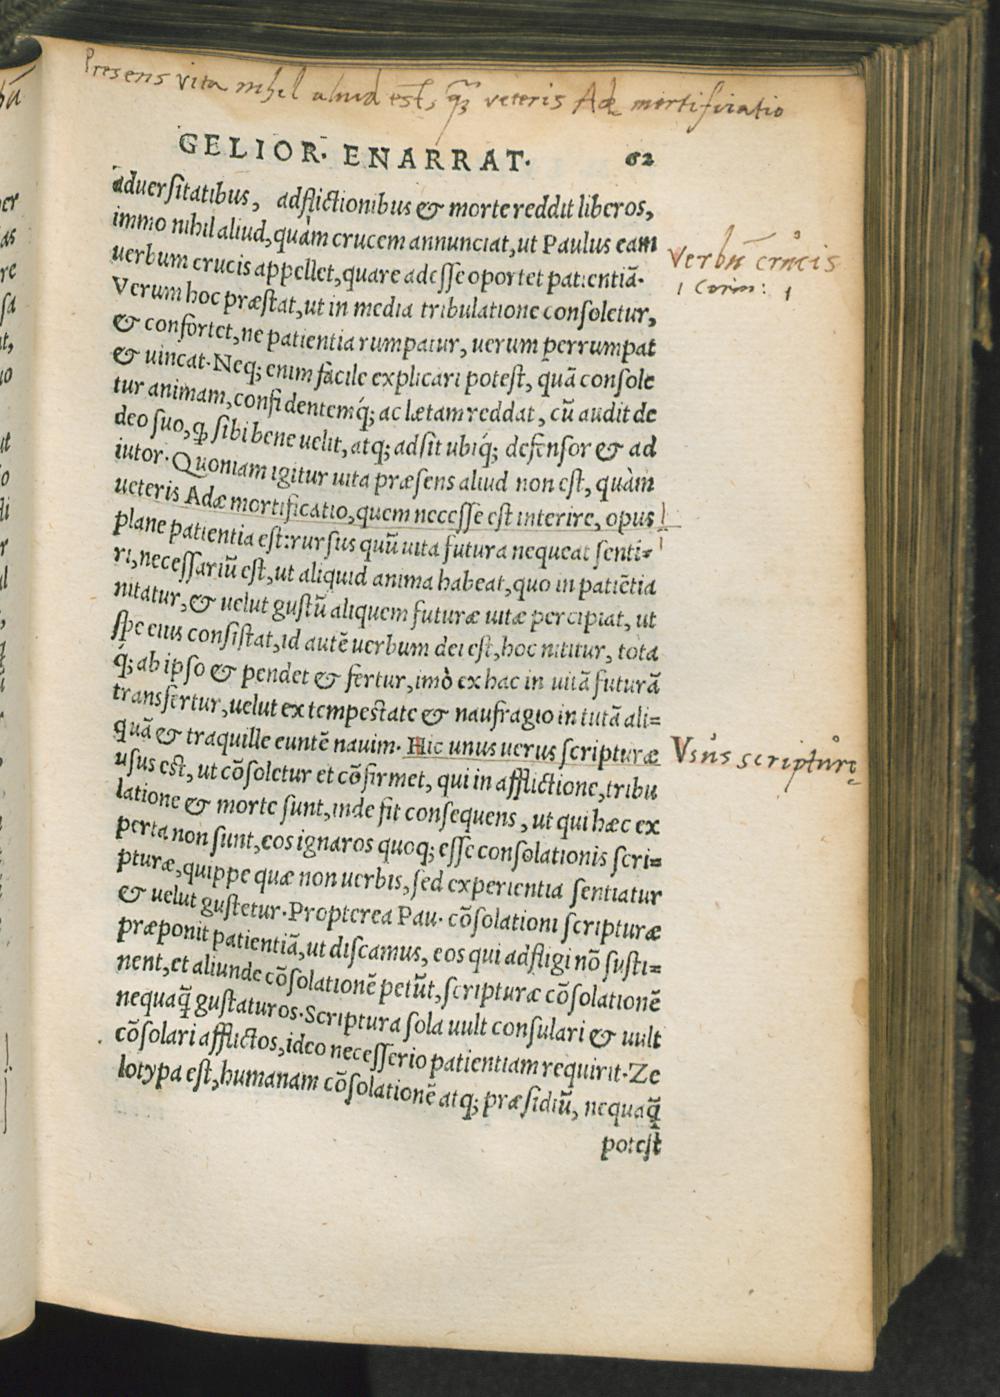 Presens vita nihil aliud est, qꝫ veteris Adę mortificatio
GELIOR· ENARRAT· 62
aduersitatibus, adflictionibus & morte reddit liberos,
immo nihil aliud, quàm crucem annunciat, ut Paulus eam
uerbum crucis appellet, quare adesse oportet patientiā·
Verbū crucis
1 Corin: 1
Verum hoc præstat, ut in media tribulatione consoletur,
& confortet, ne patientia rumpatur, uerum perrumpat
& uincat· Neq; enim facile explicari potest, quā console
tur animam, confidentemq́; ac lætam reddat, cū audit de
deo suo, ꝙ sibi bene uelit, atq; adsit ubiq́; defensor & ad
iutor· Quoniam igitur uita præsens aliud non est, quàm
ueteris Adæ mortificatio, quem necesse est interire, opus
plane patientia est: rursus quū uita futura nequeat senti=
ri, necessariū est, ut aliquid anima habeat, quo in patiētia
nitatur, & uelut gustū aliquem futuræ uitæ percipiat, ut
spe eius consistat, id autē uerbum dei est, hoc nititur, tota
q́; ab ipso & pendet & fertur, imò ex hac in uitā futurā
transfertur, uelut ex tempestate & naufragio in tutā ali=
quā & traquille euntē nauim· Hic unus uerus scripturæ
Vsus scripturę
usus est, ut cōsoletur et cōfirmet, qui in afflictione, tribu
latione & morte sunt, inde fit consequens, ut qui hæc ex
perta non sunt, eos ignaros quoq; esse consolationis scri=
pturæ, quippe quæ non uerbis, sed experientia sentiatur
& uelut gustetur· Propterea Pau· cōsolationi scripturæ
præponit patientiā, ut discamus, eos qui adfligi nō susti=
nent, et aliunde cōsolationē petūt, scripturæ cōsolationē
nequaq̄ gustaturos· Scriptura sola uult consulari & uult
cōsolari afflictos, ideo necesserio patientiam requirit· Ze
lotypa est, humanam cōsolationē atq; præsidiū, nequaq̄
potest